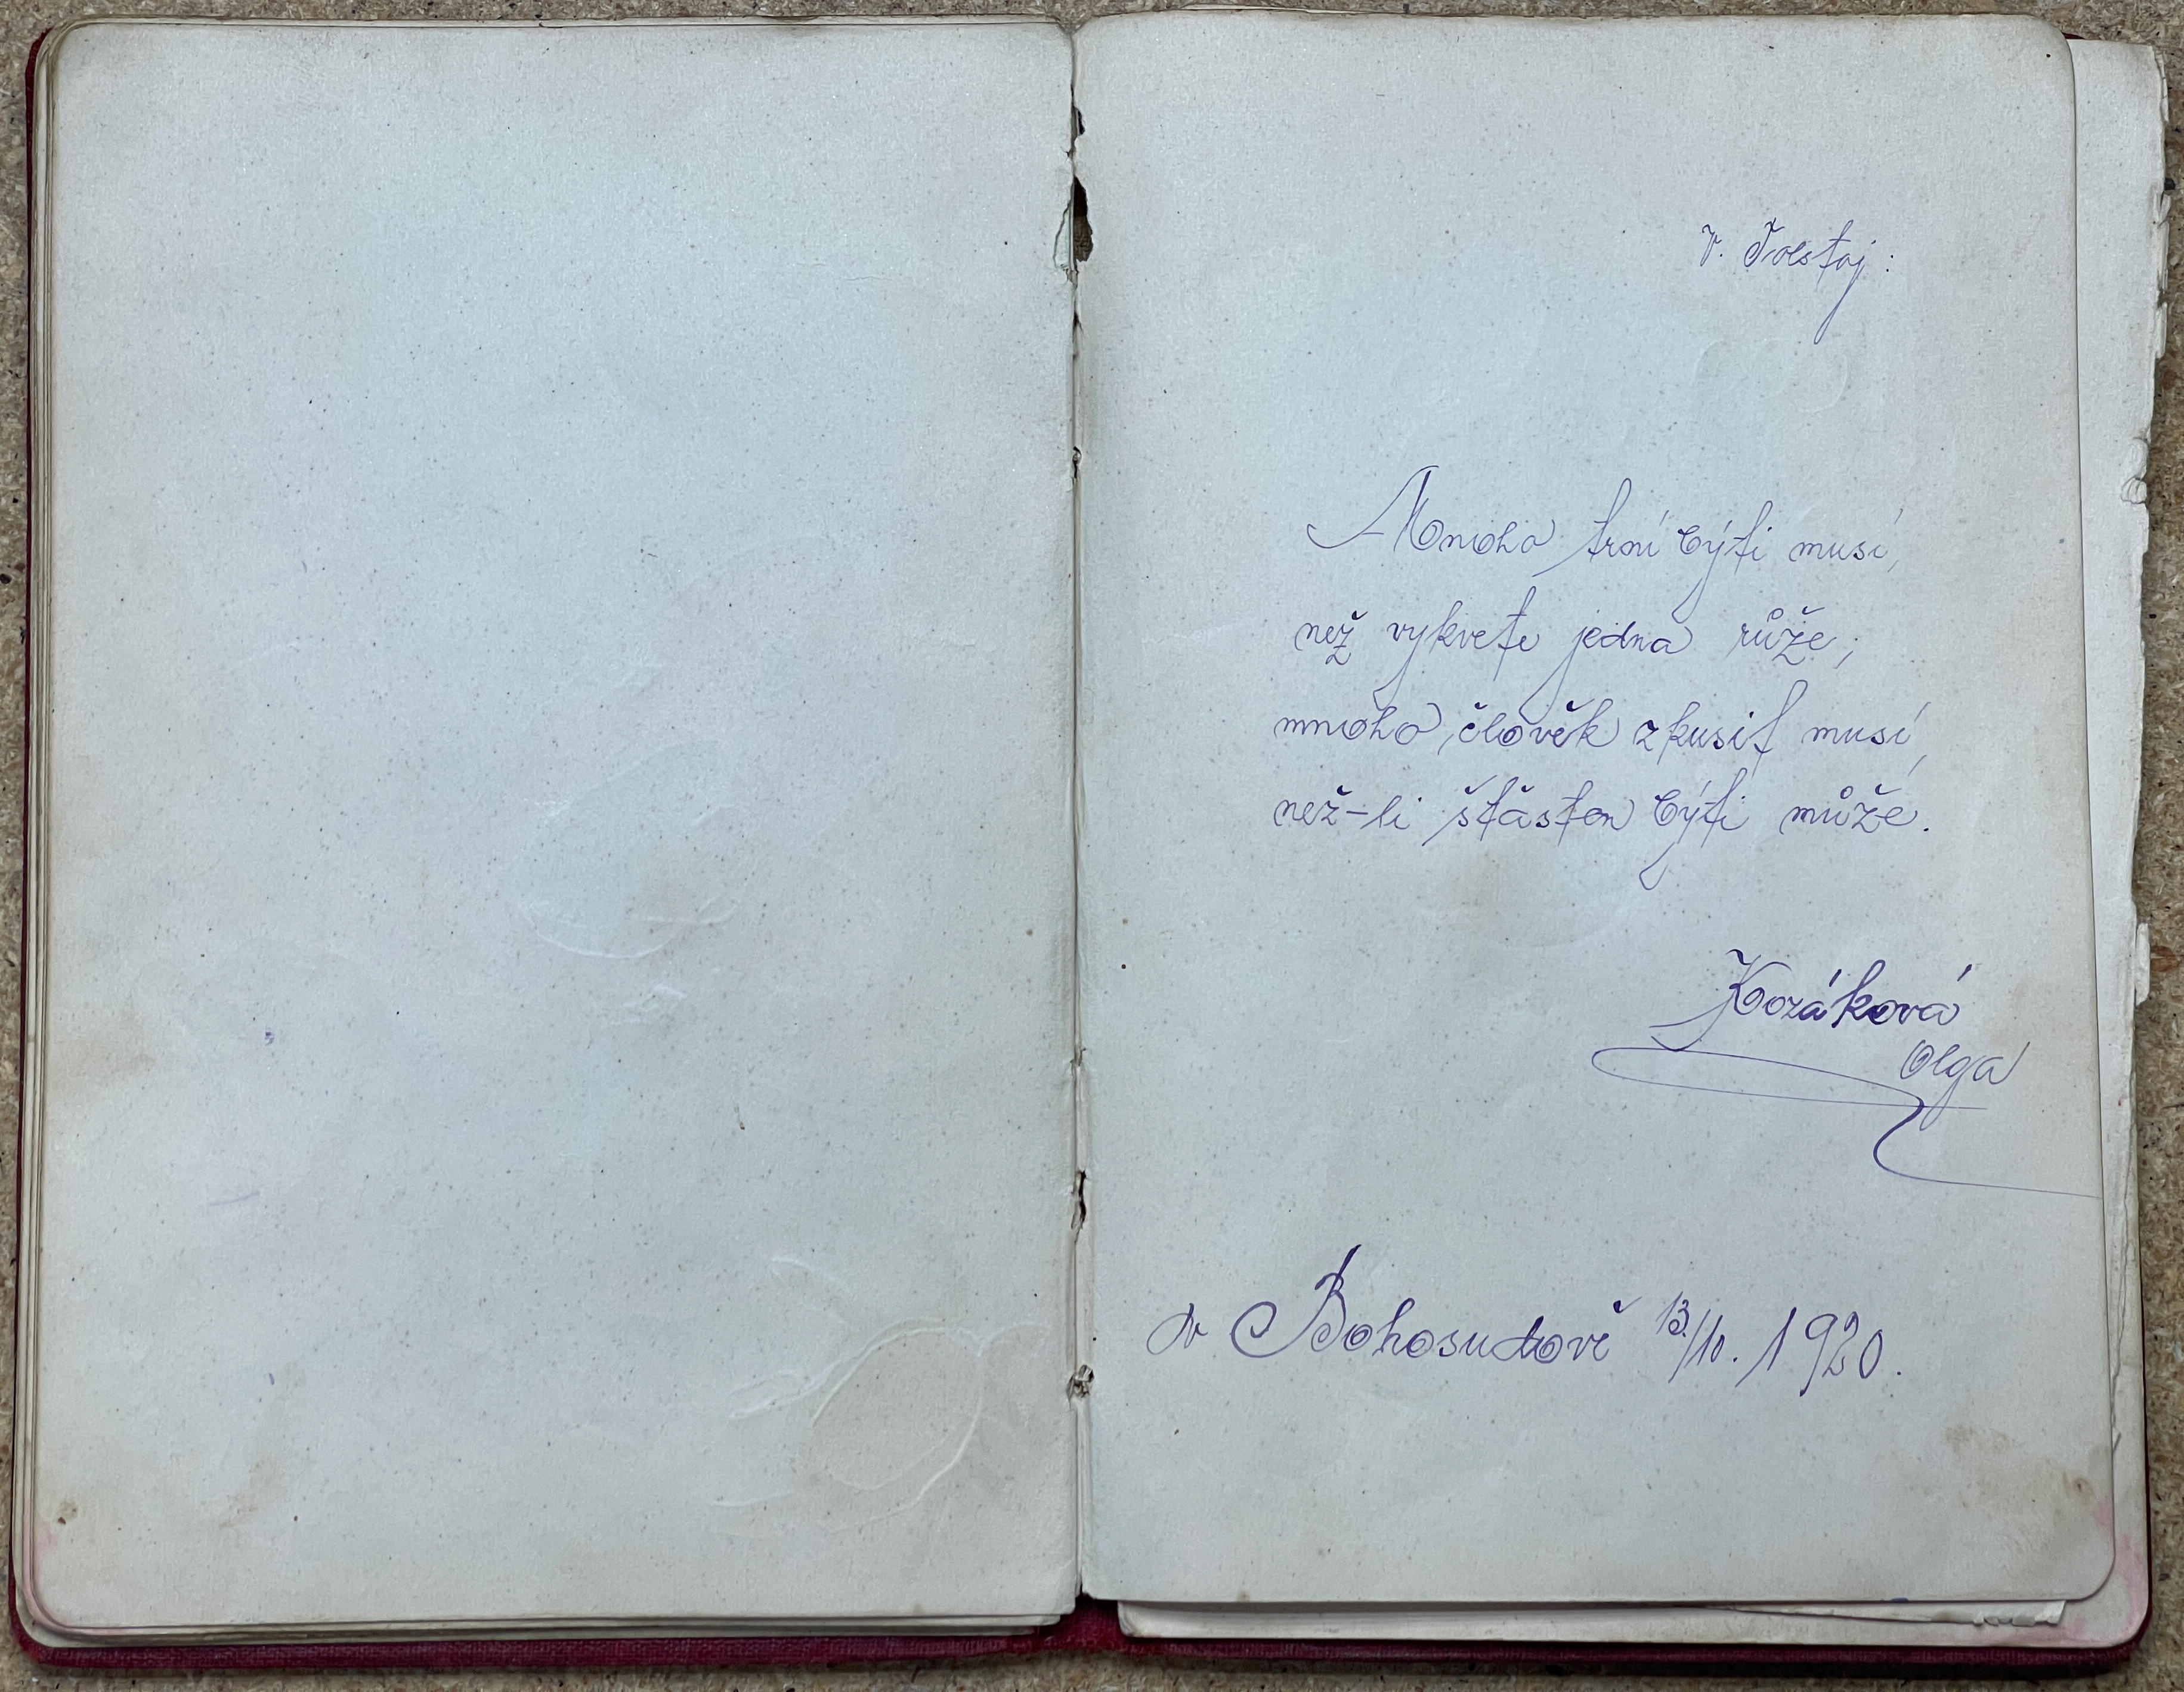 V. Tolstoj:
Mnoho trní býti musí,
než vykvete jedna růže;
mnoho člověk zkusit musí,
než-li šťasten býti může.
Kozáková
Olga
v Bohosudově 13./10. 1920.